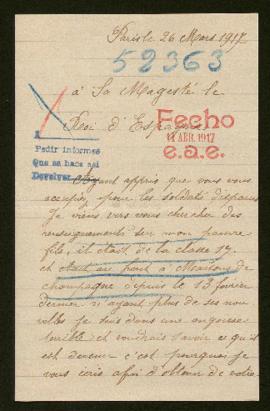 Paris le 26 Mars 1917
52363
à Sa Magesté le
Roi d'Espagne
Fecho
11 ABR. 1917
e.a.e.
Pedir informes
Que se hace así
Devolver
Ayant appris que vous vous
occupiez pour les soldats disparus
Je viens vers vous chercher des
renseignements sur mon pauvre
fils, il était de la classe 17
et était au front à Maisons de
champagne depuis le 13 fevrier
dernier n'ayant plus de ses nou
velles je suis dans une angoisse
terrible et voudrais savoir ce qu'il
est devenu c'est pourquoi je
vous écris afin d'obtenir de votre